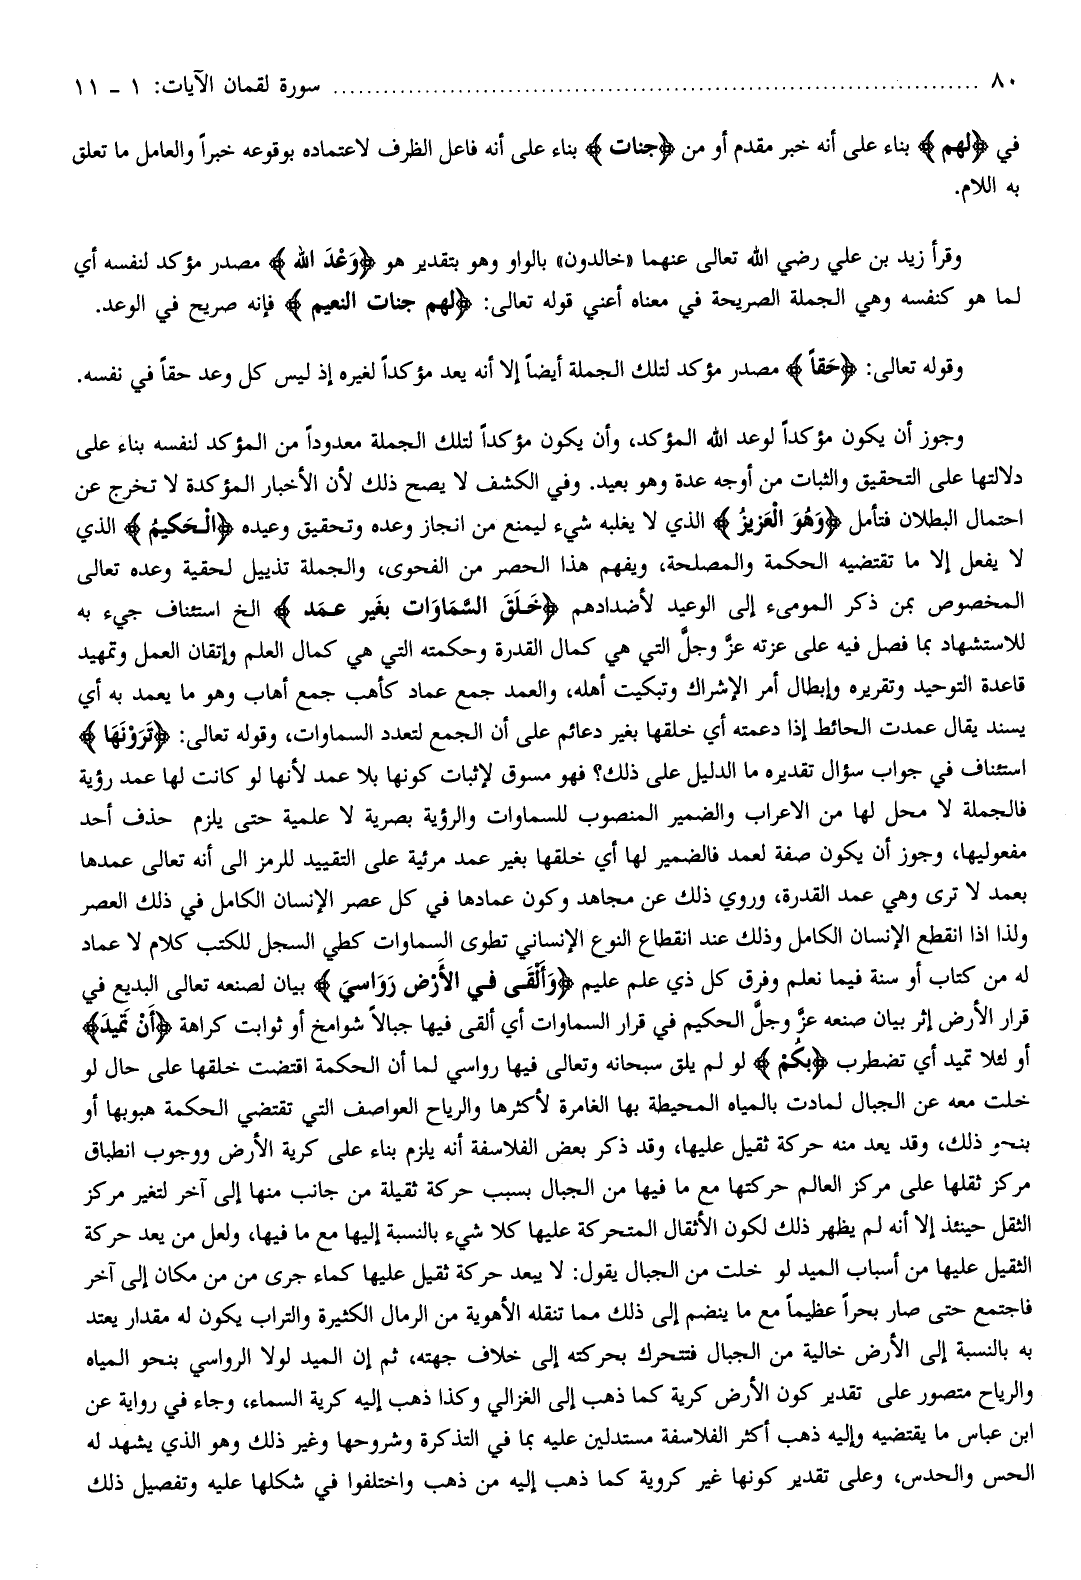 ٨٠ ............................................................ سورة لقمان الآيات: ١ - ١١
في ﴿لهم﴾ بناء على أنه خبر مقدم أو من ﴿جنات﴾ بناء على أنه فاعل الظرف لاعتماده بوقوعه خبراً والعامل ما تعلق
به اللام.
وقرأ زيد بن علي رضي الله تعالى عنهما «خالدون» بالواو وهو بتقدير هو ﴿وَعْدَ الله﴾ مصدر مؤكد لنفسه أي
لما هو كنفسه وهي الجملة الصريحة في معناه أعني قوله تعالى: ﴿لهم جنات النعيم﴾ فإنه صريح في الوعد.
وقوله تعالى: ﴿حَقاً﴾ مصدر مؤكد لتلك الجملة أيضاً إلا أنه يعد مؤكداً لغيره إذ ليس كل وعد حقاً في نفسه.
وجوز أن يكون مؤكداً لوعد الله المؤكد، وأن يكون مؤكداً لتلك الجملة معدوداً من المؤكد لنفسه بناء على
دلالتها على التحقيق والثبات من أوجه عدة وهو بعيد. وفي الكشف لا يصح ذلك لأن الأخبار المؤكدة لا تخرج عن
احتمال البطلان فتأمل ﴿وَهُوَ الْعَزِيزُ﴾ الذي لا يغلبه شيء ليمنع من انجاز وعده وتحقيق وعيده ﴿الْحَكيمُ﴾ الذي
لا يفعل إلا ما تقتضيه الحكمة والمصلحة، ويفهم هذا الحصر من الفحوى، والجملة تذييل لحقية وعده تعالى
المخصوص بمن ذكر المومىء إلى الوعيد لأضدادهم ﴿خَلَقَ السَّمَاوَات بغَير عمَد﴾ الخ استئناف جيء به
للاستشهاد بما فصل فيه على عزته عزَّ وجلَّ التي هي كمال القدرة وحكمته التي هي كمال العلم وإتقان العمل وتمهيد
قاعدة التوحيد وتقريره وإبطال أمر الإشراك وتبكيت أهله، والعمد جمع عماد كأهب جمع أهاب وهو ما يعمد به أي
يسند يقال عمدت الحائط إذا دعمته أي خلقها بغير دعائم على أن الجمع لتعدد السماوات، وقوله تعالى: ﴿تَرَوْنَهَا﴾
استئناف في جواب سؤال تقديره ما الدليل على ذلك؟ فهو مسوق لإثبات كونها بلا عمد لأنها لو كانت لها عمد رؤية
فالجملة لا محل لها من الاعراب والضمير المنصوب للسماوات والرؤية بصرية لا علمية حتى يلزم حذف أحد
مفعوليها، وجوز أن يكون صفة لعمد فالضمير لها أي خلقها بغير عمد مرئية على التقييد للرمز الى أنه تعالى عمدها
بعمد لا ترى وهي عمد القدرة، وروي ذلك عن مجاهد وكون عمادها في كل عصر الإنسان الكامل في ذلك العصر
ولذا اذا انقطع الإنسان الكامل وذلك عند انقطاع النوع الإنساني تطوى السماوات كطي السجل للكتب كلام لا عماد
له من كتاب أو سنة فيما نعلم وفرق كل ذي علم عليم ﴿وَأَلْقَى في الأَرْض رَوَاسيَ﴾ بيان لصنعه تعالى البديع في
قرار الأرض إثر بيان صنعه عزَّ وجلَّ الحكيم في قرار السماوات أي ألقى فيها جبالاً شوامخ أو ثوابت كراهة ﴿أَنْ تَميدَ﴾
أو لئلا تميد أي تضطرب ﴿بكُمْ﴾ لو لم يلق سبحانه وتعالى فيها رواسي لما أن الحكمة اقتضت خلقها على حال لو
خلت معه عن الجبال لمادت بالمياه المحيطة بها الغامرة لأكثرها والرياح العواصف التي تقتضي الحكمة هبوبها أو
بنحو ذلك، وقد يعد منه حركة ثقيل عليها، وقد ذكر بعض الفلاسفة أنه يلزم بناء على كرية الأرض ووجوب انطباق
مركز ثقلها على مركز العالم حركتها مع ما فيها من الجبال بسبب حركة ثقيلة من جانب منها إلى آخر لتغير مركز
الثقل حينئذ إلا أنه لم يظهر ذلك لكون الأثقال المتحركة عليها كلا شيء بالنسبة إليها مع ما فيها، ولعل من يعد حركة
الثقيل عليها من أسباب الميد لو خلت من الجبال يقول: لا يبعد حركة ثقيل عليها كماء جرى من من مكان إلى آخر
فاجتمع حتى صار بحراً عظيماً مع ما ينضم إلى ذلك مما تنقله الأهوية من الرمال الكثيرة والتراب يكون له مقدار يعتد
به بالنسبة إلى الأرض خالية من الجبال فتتحرك بحركته إلى خلاف جهته، ثم إن الميد لولا الرواسي بنحو المياه
والرياح متصور على تقدير كون الأرض كرية كما ذهب إلى الغزالي وكذا ذهب إليه كرية السماء، وجاء في رواية عن
ابن عباس ما يقتضيه وإليه ذهب أكثر الفلاسفة مستدلين عليه بما في التذكرة وشروحها وغير ذلك وهو الذي يشهد له
الحس والحدس، وعلى تقدير كونها غير كروية كما ذهب إليه من ذهب واختلفوا في شكلها عليه وتفصيل ذلك